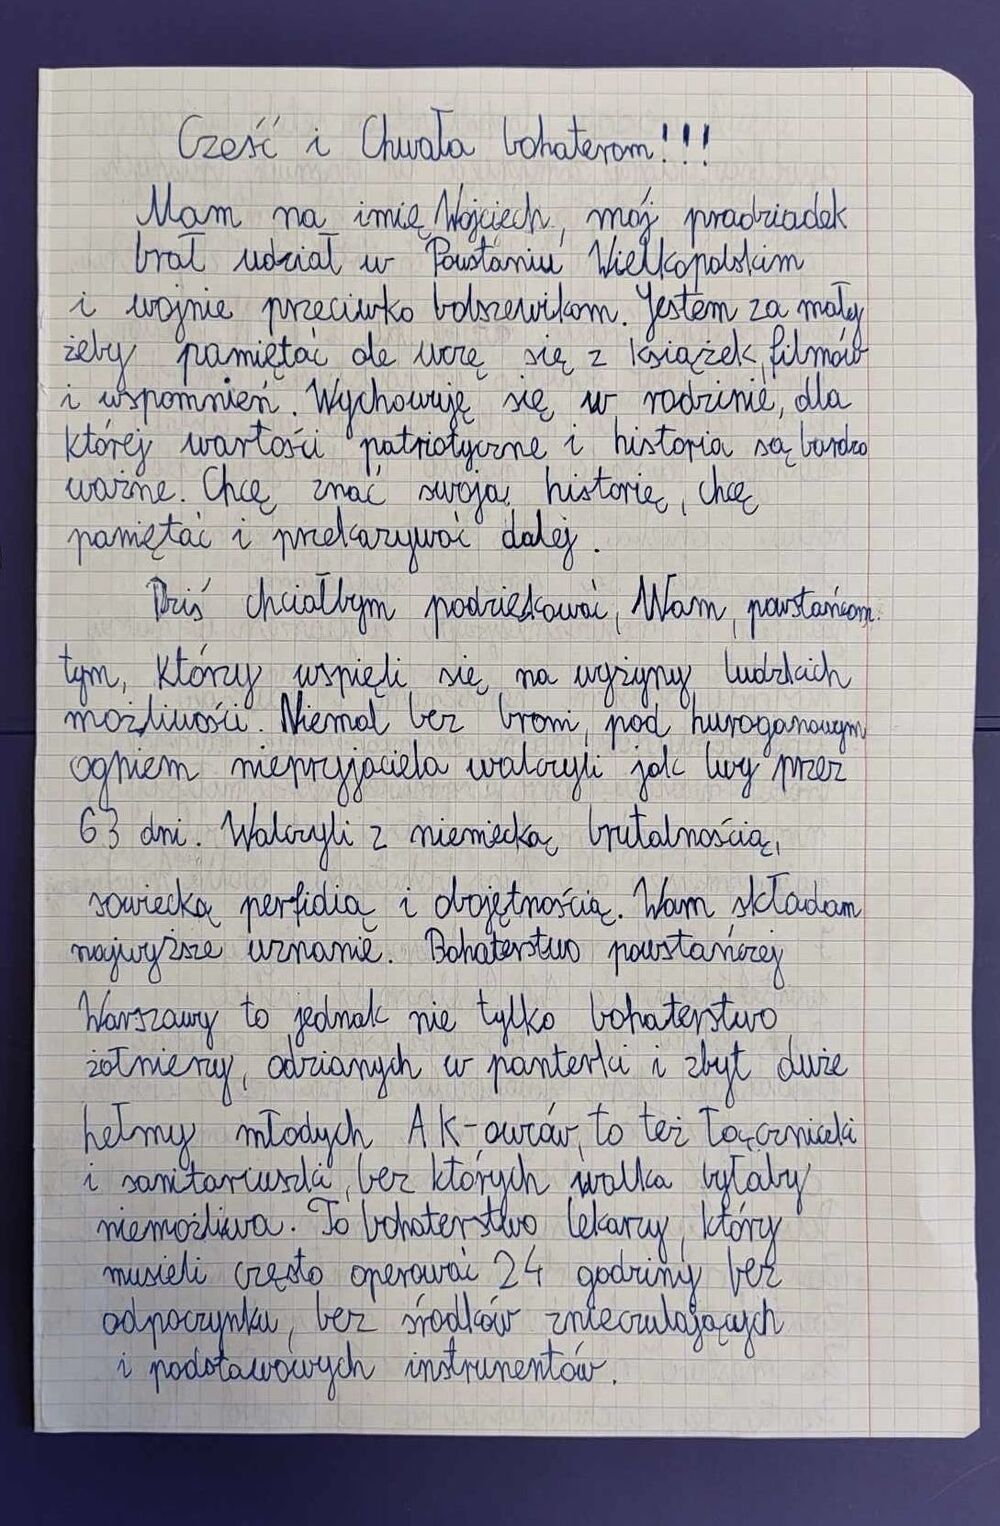 Cześć i Chwała bohaterom!!!
Mam na imię Wojciech, mój pradziadek
brał udział w Powstaniu Wielkopolskim
i wojnie przeciwko bolszewikom. Jestem za mały
żeby pamiętać ale uczę się z książek, filmów
i wspomnień. Wychowuję się w rodzinie, dla
której wartości patriotyczne i historia są bardzo
ważne. Chcę znać swoją historię, chcę
pamiętać i przekazywać dalej.
Dziś chciałbym podziękować, Wam, powstańcom
tym, którzy wspięli się na wyżyny ludzkich
możliwości. Niemal bez broni, pod huraganowym
ogniem nieprzyjaciela walczyli jak lwy przez
63 dni. Walczyli z niemiecką brutalnością,
sowiecką perfidią i obojętnością. Wam składam
najwyższe uznanie. Bohaterstwo powstańczej
Warszawy to jednak nie tylko bohaterstwo
żołnierzy, odzianych w panterki i zbyt duże
hełmy młodych AK-owców, to też łączniczki
i sanitariuszki, bez których walka byłaby
niemożliwa. To bohaterstwo lekarzy, który
musieli często operować 24 godziny bez
odpoczynku, bez środków znieczulających
i podstawowych instrumentów.